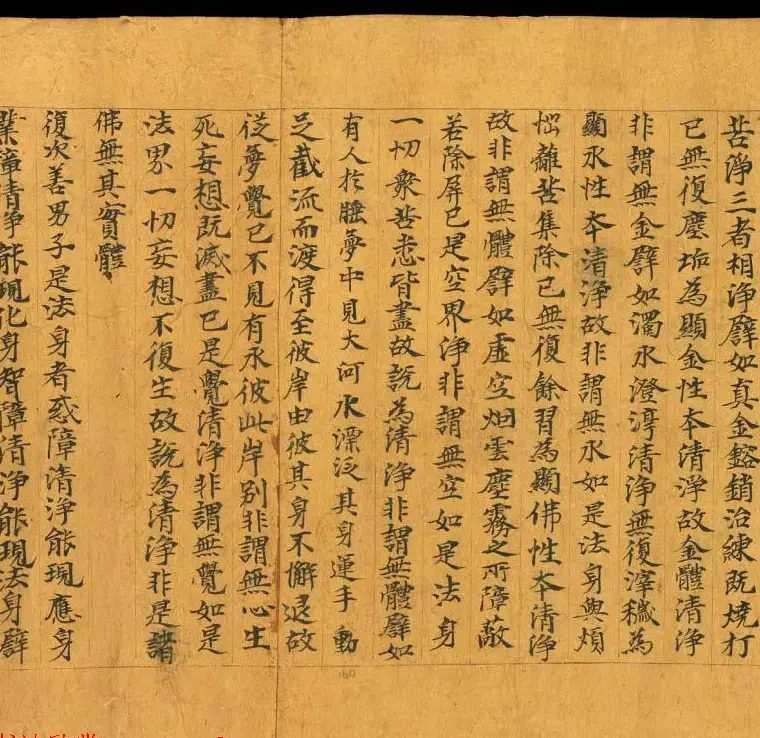 苦淨三者相淨譬如真金鎔銷治練既燒打
已無復塵垢為顯金性本清淨故金體清淨
非謂無金譬如濁水澄渟清淨無復滓穢為
顯水性本清淨故非謂無水如是法身與煩
惱離苦集除已無復餘習為顯佛性本清淨
故非謂無體譬如虛空烟雲塵霧之所障蔽
若除屏已是空界淨非謂無空如是法身
一切衆苦悉皆盡故說為清淨非謂無體譬如
有人於睡夢中見大河水漂泛其身運手動
足截流而渡得至彼岸由彼其身不懈退故
從夢覺已不見有水彼此岸別非謂無心生
死妄想既滅盡已是覺清淨非謂無覺如是
法界一切妄想不復生故說為清淨非是諸
佛無其實體
復次善男子是法身者惑障清淨能現應身
業障清淨能現化身智障清淨能現法身譬